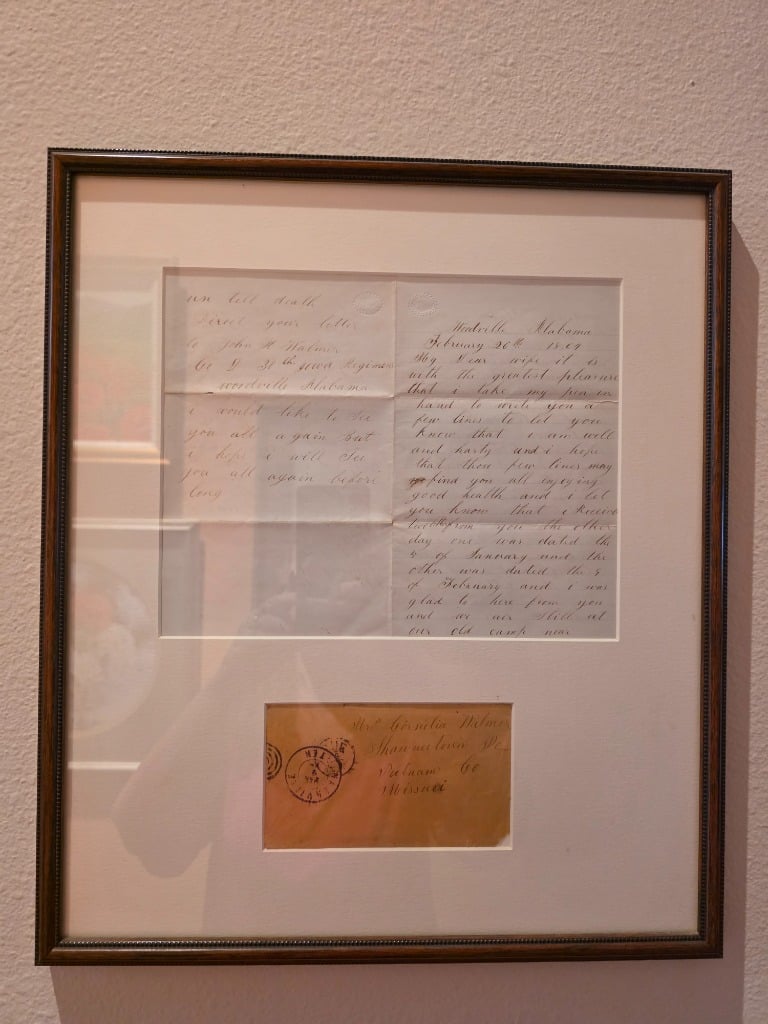 un till death
Direct your letter
to John H Walmer
Co D 31th iowa Regiment
woodville Alabama
i would like to See
you all again but
i hope i will See
you all again before
long
Woodville Alabama
February 26th 1864
My Dear wife it is
with the greatest pleasure
that i take my pen in
hand to write you a
few lines to let you
know that i am well
and harty and i hope
that those few lines may
find you all injoying
good health and i let
you know that i Receive
from you the other
day one was dated the
5 of January and the
other was dated the 5
of February and i was
glad to here from you
and we are Still at
our old camp near
Mrs Cornelia Walmer
Shawneetown Po
Putnam Co
Missuri
NASHVILLE
TEN
MAR